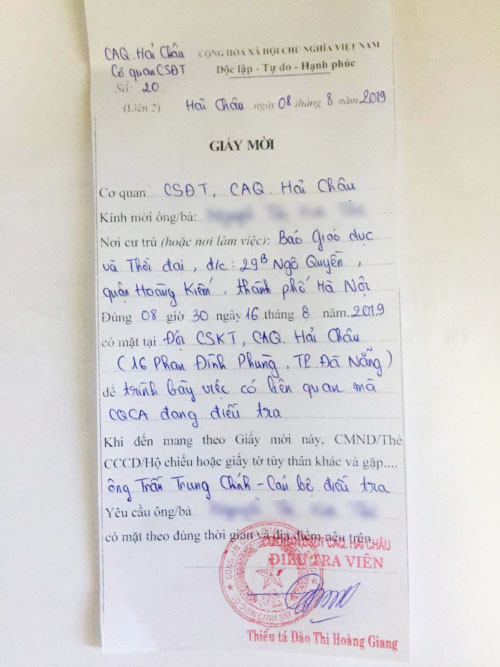 CAQ. Hải Châu
CỘNG HÒA XÃ HỘI CHỦ NGHĨA VIỆT NAM
Cơ quan CSĐT
Độc lập - Tự do - Hạnh phúc
Số: 20
(Liên 2)
Hải Châu ngày 08 tháng 8 năm 2019
GIẤY MỜI
Cơ quan CSĐT, CAQ. Hải Châu
Kính mời ông/bà:
Nơi cư trú (hoặc nơi làm việc): Báo Giáo dục
và Thời đại, đ/c: 29B Ngô Quyền,
quận Hoàng Kiếm, thành phố Hà Nội
Đúng 08 giờ 30 ngày 16 tháng 8 năm 2019
có mặt tại Đội CSKT, CAQ. Hải Châu
(16 Phan Đình Phùng, TP Đà Nẵng)
để trình bày việc có liên quan mà
CQCA đang điều tra
Khi đến mang theo Giấy mời này, CMND/Thẻ
CCCD/Hộ chiếu hoặc giấy tờ tùy thân khác và gặp....
ông Trần Trung Chính - Cán bộ điều tra
Yêu cầu ông/bà
có mặt theo đúng thời gian và địa điểm nêu trên
CƠ QUAN CSĐT CAQ. HẢI CHÂU
ĐIỀU TRA VIÊN
Thiếu tá Đào Thị Hoàng Giang